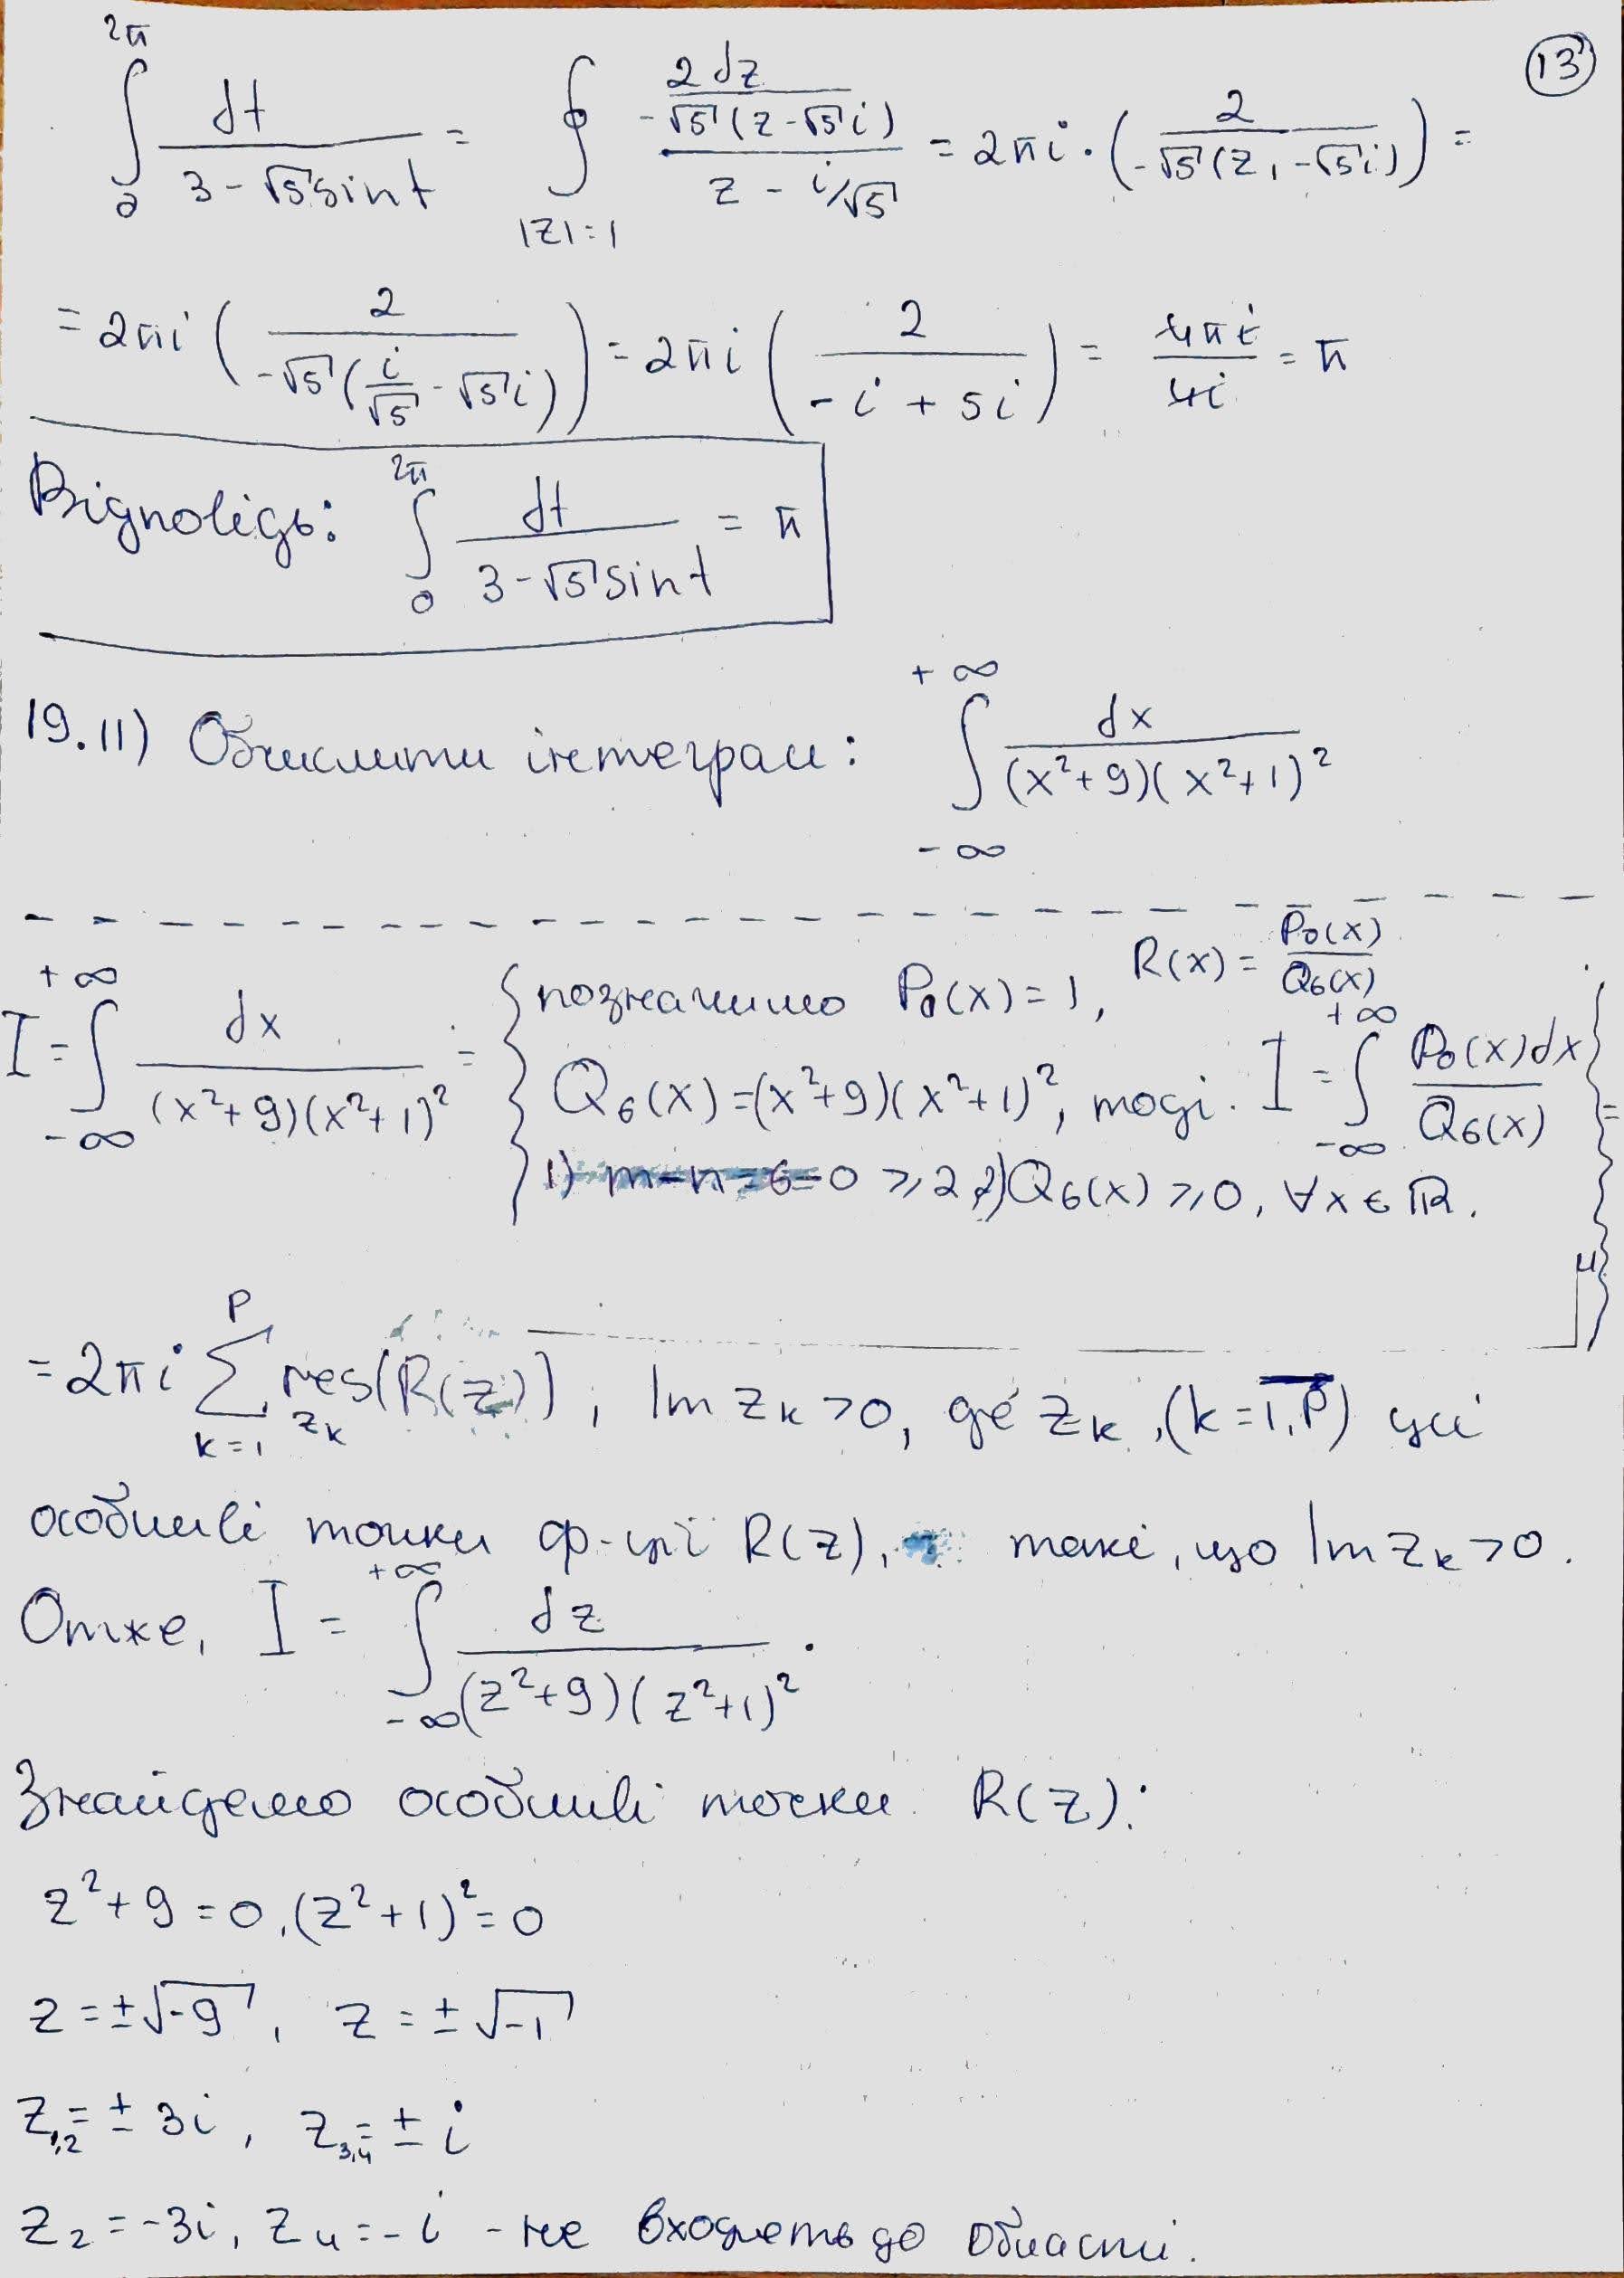 13
∫₀^{2π} dt / (3 - √5 sin t) = ∮_{|z|=1} (2dz / (-√5(z - √5i))) / (z - i/√5) = 2πi · (2 / (-√5(z₁ - √5i))) =
= 2πi (2 / (-√5(i/√5 - √5i))) = 2πi (2 / (-i + 5i)) = 4πi / 4i = π
Відповідь: ∫₀^{2π} dt / (3 - √5 sin t) = π
19.11) Обчислити інтеграл: ∫_{-∞}^{+∞} dx / ((x²+9)(x²+1)²)
I = ∫_{-∞}^{+∞} dx / ((x²+9)(x²+1)²) = { позначимо P₀(x) = 1, R(x) = P₀(x) / Q₆(x)
Q₆(x) = (x²+9)(x²+1)², тоді I = ∫_{-∞}^{+∞} P₀(x)dx / Q₆(x)
1) m-n=6-0 ≥ 2, 2) Q₆(x) ≥ 0, ∀x ∈ ℝ. } =
= 2πi Σ_{k=1}^{p} res_{z_k}(R(z)), Im z_k > 0, де z_k, (k = 1,p) усі
особливі точки ф-ції R(z), такі, що Im z_k > 0.
Отже, I = ∫_{-∞}^{+∞} dz / ((z²+9)(z²+1)²).
Знайдемо особливі точки R(z):
z²+9 = 0, (z²+1)² = 0
z = ±√-9, z = ±√-1
z₁,₂ = ± 3i, z₃,₄ = ± i
z₂ = -3i, z₄ = -i - не входять до області.